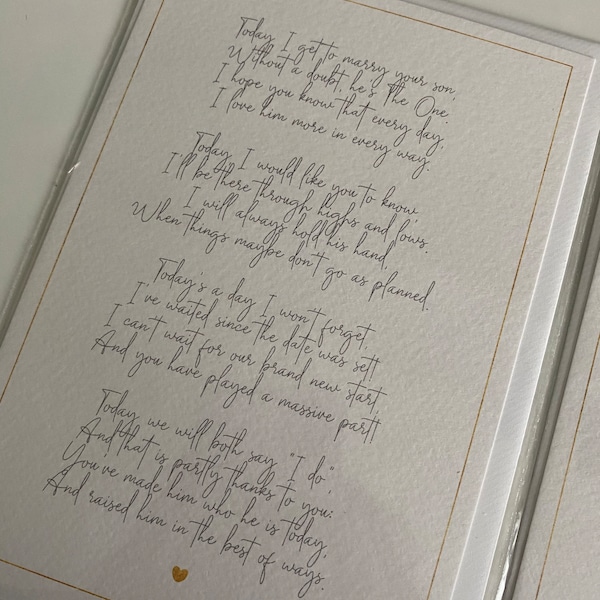 Today I get to marry your son,
Without a doubt, he's The One.
I hope you know that every day,
I love him more in every way.
Today I would like you to know
I'll be there through highs and lows.
I will always hold his hand,
When things maybe don't go as planned.
Today's a day I won't forget,
I've waited since the date was set!
I can't wait for our brand new start,
And you have played a massive part!
Today we will both say "I do",
And that is partly thanks to you:
You've made him who he is today,
And raised him in the best of ways.